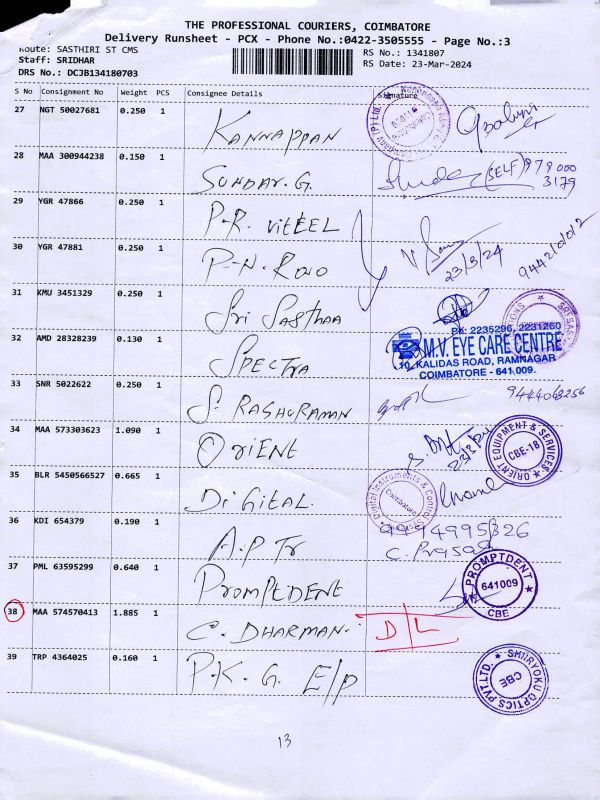 THE PROFESSIONAL COURIERS, COIMBATORE
Delivery Runsheet - PCX - Phone No.:0422-3505555 - Page No.:3
Route: SASTHIRI ST CMS
RS No.: 1341807
Staff: SRIDHAR
RS Date: 23-Mar-2024
DRS No.: DCJB134180703
S No Consignment No Weight PCS Consignee Details Signature
27 NGT 50027681 0.250 1 KANNAPPAN
28 MAA 300944238 0.150 1 SUNDAR.G (SELF) 979000
3179
29 YGR 47866 0.250 1 P-R. VITEEL
30 YGR 47881 0.250 1 P-N. ROVO 23/3/24
31 KMU 3451329 0.250 1 Sri SASTHAA
32 AMD 28328239 0.130 1 SPECTRA
PH: 2235296, 2231260
M.V. EYE CARE CENTRE
10, KALIDAS ROAD, RAMNAGAR
COIMBATORE - 641 009.
33 SNR 5022622 0.250 1 S. RAGHURAMAN
34 MAA 573303623 1.090 1 ORIENT 23/3/24
ORIENT EQUIPMENT & SERVICES
CBE-18
35 BLR 5450566527 0.665 1 DIGITAL
Digital Instruments & Control
Coimbatore
36 KDI 654379 0.190 1 A.P Tr 9994995326
C. Prasad
37 PML 63595299 0.640 1 PROMPEDENT
PROMPTDENT
641009
CBE
38 MAA 574570413 1.885 1 C. DHARMAN. D/L
39 TRP 4364025 0.160 1 P.K. G. E/p
SHIIRYOKU OPTICS PVT.LTD.
CBE
13